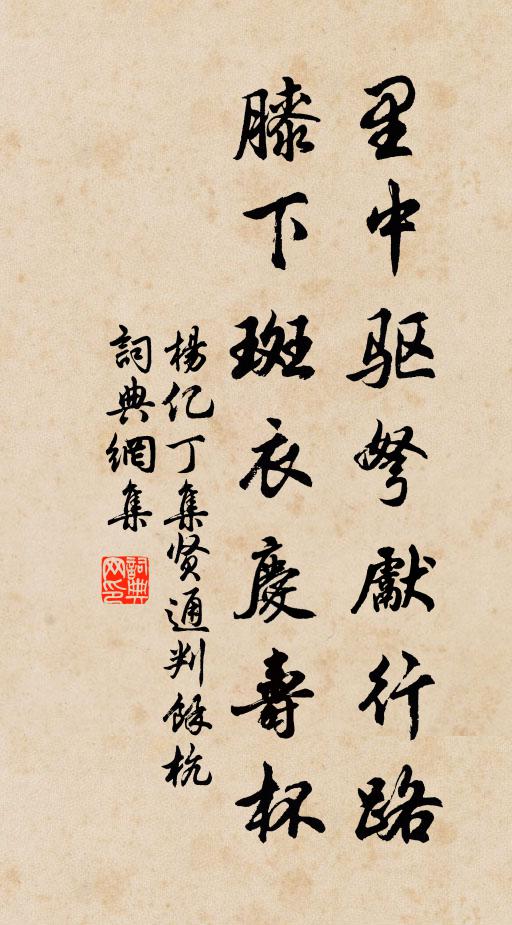 里中驱弩獻行路
膝下斑衣慶壽杯
楊亿丁集贤通判餘杭
詞典網集
詞典网印